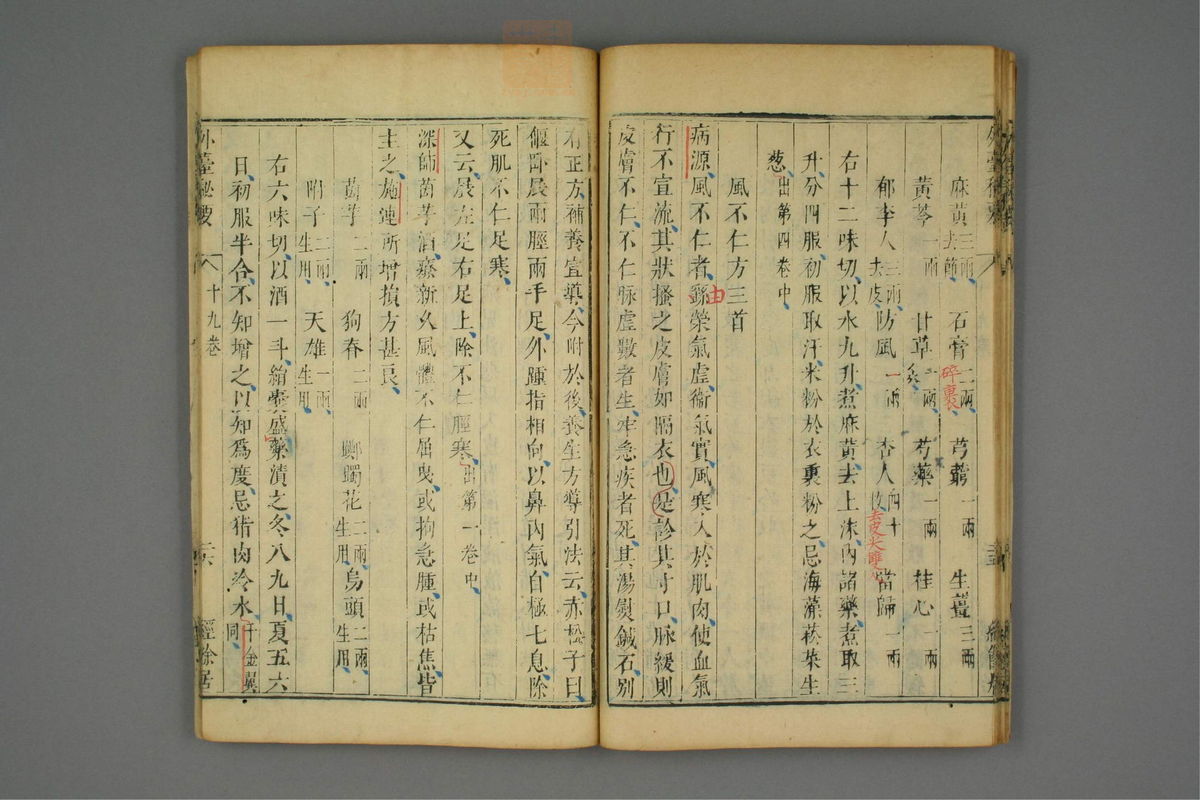 麻黃三兩去節 石膏二兩碎裹 芎藭一兩 生薑三兩
黃芩一兩 甘草二兩炙 芍藥一兩 桂心一兩
郁李人三兩去皮 防風一兩 杏人四十枚去皮尖 當歸一兩
右十二味切以水九升煮麻黃去上沫內諸藥煮取三
升分四服初服取汗米粉於衣裹粉之忌海藻菘菜生
葱出第四卷中
風不仁方三首
病源風不仁者由榮氣虛衞氣實風寒入於肌肉使血氣
行不宣流其狀搔之皮膚如隔衣也是診其寸口脉緩則
皮膚不仁不仁脉虛數者生牢急疾者死其湯熨鍼石別
有正方補養宣導今附於後養生方導引法云赤松子曰
偃臥展兩脛兩手足外踵指相向以鼻內氣自極七息除
死肌不仁足寒
又云展左足右足上除不仁脛寒出第一卷中
深師茵芋酒療新久風體不仁屈曳或拘急腫或枯焦皆
主之施連所增損方甚良
茵芋二兩 狗脊二兩 躑躅花二兩生用 烏頭二兩生用
附子二兩生用 天雄一兩生用
右六味切以酒一斗絹囊盛藥漬之冬八九日夏五六
日初服半合不知增之以知爲度忌猪肉冷水千金翼同
外臺秘要 十九卷 二六 經餘居